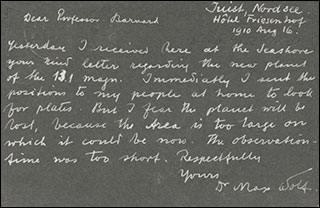 Juist, Nordsee.
Hôtel Friesenhof
1910 Aug 16.
Dear Professor Barnard
Yesterday I received here at the Seashore
your kind letter regarding the new planet
of the 13.1 magn. Immediately I sent the
positions to my people at home to look
for plates. But I fear the planet will be
lost, because the Area is too large on
which it could be now. The observation-
time was too short. Respectfully
Yours
Dr Max Wolf